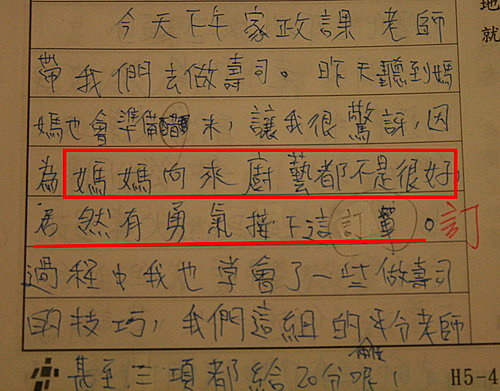 今天下午家政課老師
帶我們去做壽司。昨天聽到媽
媽也會準備醋來，讓我很驚訝，因
為媽媽向來廚藝都不是很好，
居然有勇氣接下這訂單。訂
過程中我也學會了一些做壽司
的技巧，我們這組的平分老師
甚至三項都給20分呢！
H5-4
地
就